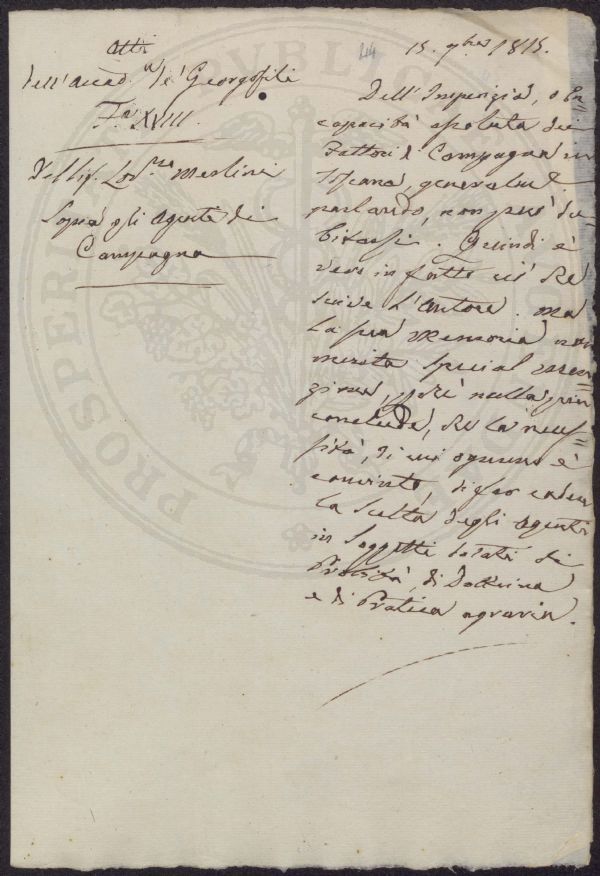 44
15. 7bre 1815.
Atti
dell'Accad.ia de' Georgofili
Fa XVIII.
Del Sig. Lod.co Merlini
Sopra gli Agenti di
Campagna
Dell'Imperizia, o In=
capacità assoluta dei
Fattori di Campagna in
Toscana, generalmt.
parlando, non può du=
bitarsi. Quindi è
vero in fatto ciò che
scrive l'Autore. Ma
la sua Memoria non
merita special men=
zione, perchè nulla più
conclude, che la neces=
sità, di cui ognuno è
convinto, di far cadere
la scelta degli Agenti
in Soggetti dotati di
Probità, di Dottrina
e di Pratica agraria.
PROSPERI
PVBLIC